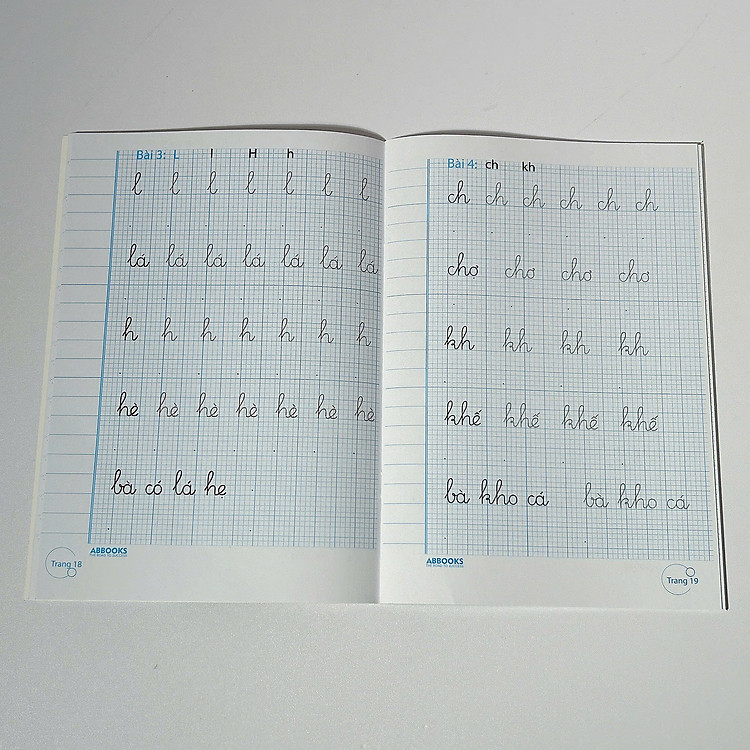 Bài 3: L l H h
l l l l l l l
lá lá lá lá lá lá lá
h h h h h h h
hè hè hè hè hè hè hè
bà có lá hẹ
ABBOOKS
THE ROAD TO SUCCESS
Trang 18
Bài 4: ch kh
ch ch ch ch ch ch
chợ chơ chơ chơ
kh kh kh kh
khế khế khế khế
bà kho cá bà kho cá
ABBOOKS
THE ROAD TO SUCCESS
Trang 19